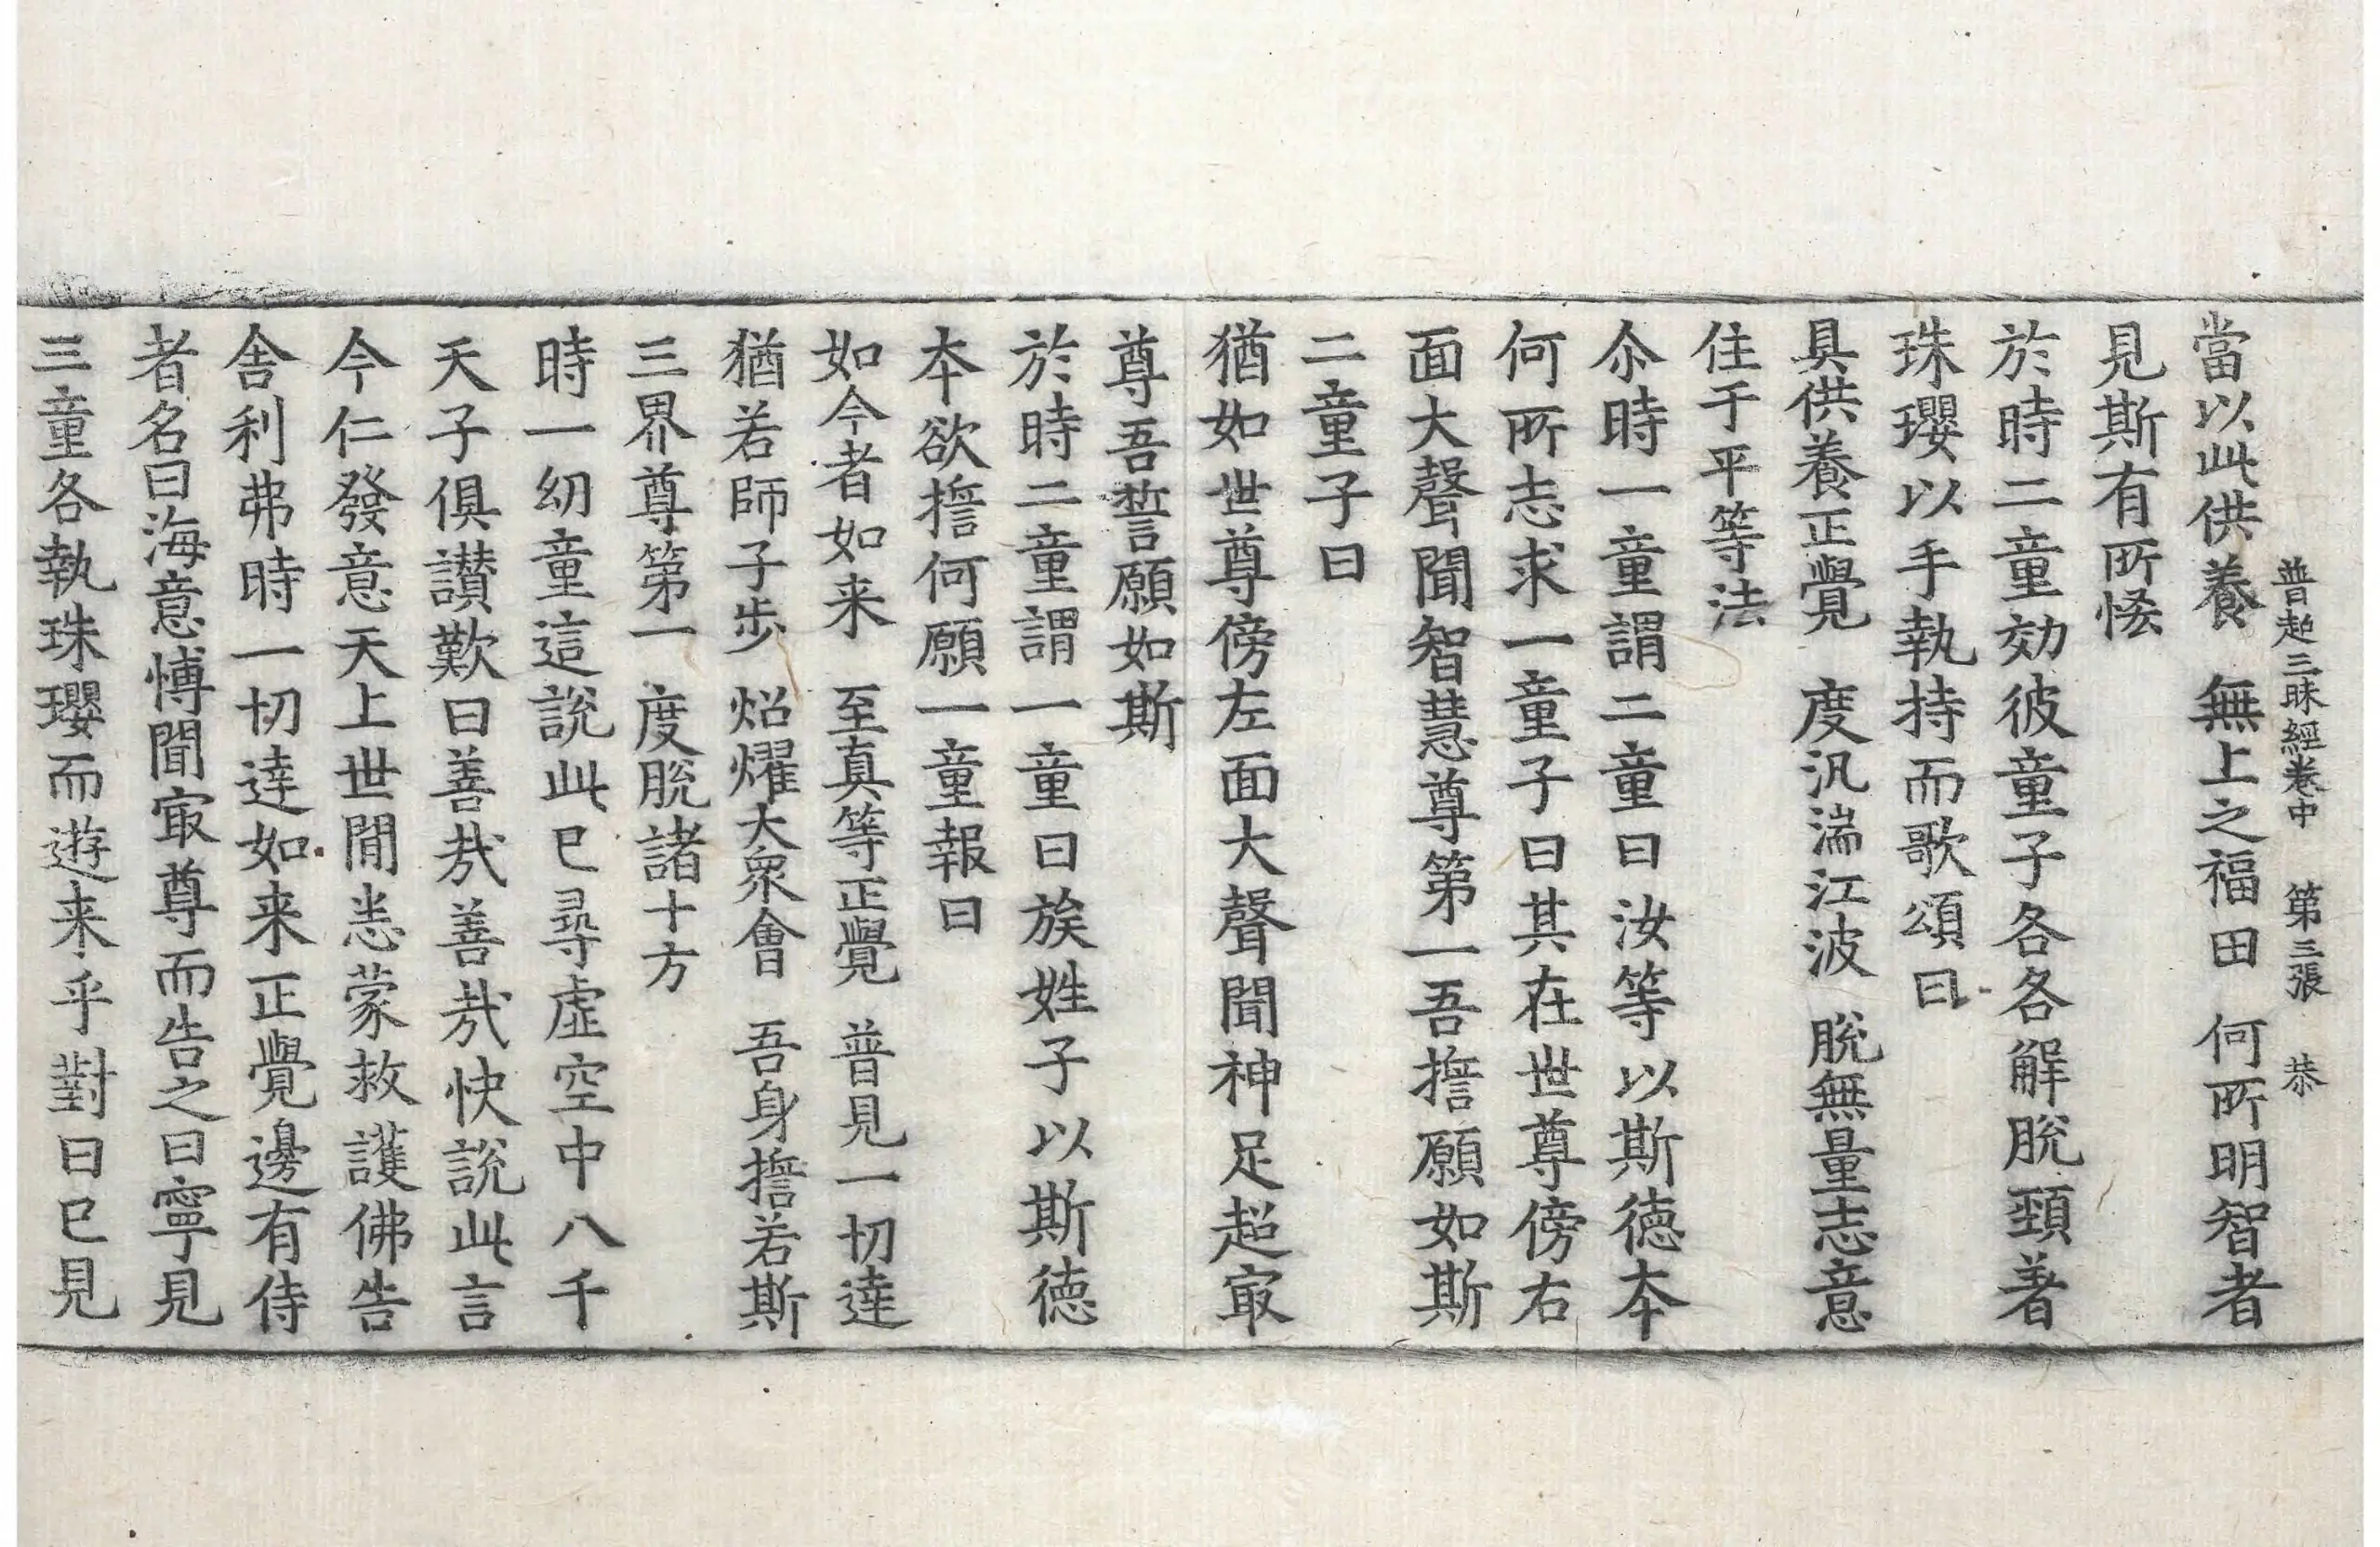 普超三昧經卷中　第三張　恭
當以此供養　無上之福田　何所明智者
見斯有所恡
於時二童子効彼童子各各解脫頸著
珠瓔以手執持而歌頌曰
具供養正覺　度汎湍江波　脫無量志意
住于平等法
尒時一童謂二童曰汝等以斯德本
何所志求一童子曰其在世尊傍右
面大聲聞智慧尊第一吾擔願如斯
二童子曰
猶如世尊傍左面大聲聞神足超㝡
尊吾誓願如斯
於時二童謂一童曰族姓子以斯德
本欲擔何願一童報曰
如今者如来　至真等正覺　普見一切達
猶若師子步　炤燿大衆會　吾身擔若斯
三界尊第一　度脫諸十方
時一幼童這說此已尋虛空中八千
天子俱讃歎曰善哉善哉快說此言
今仁發意天上世閒悉蒙救護佛告
舍利弗時一切達如来正覺邊有侍
者名曰海意愽聞㝡尊而告之曰寧見
三童各執珠瓔而遊来乎對曰已見